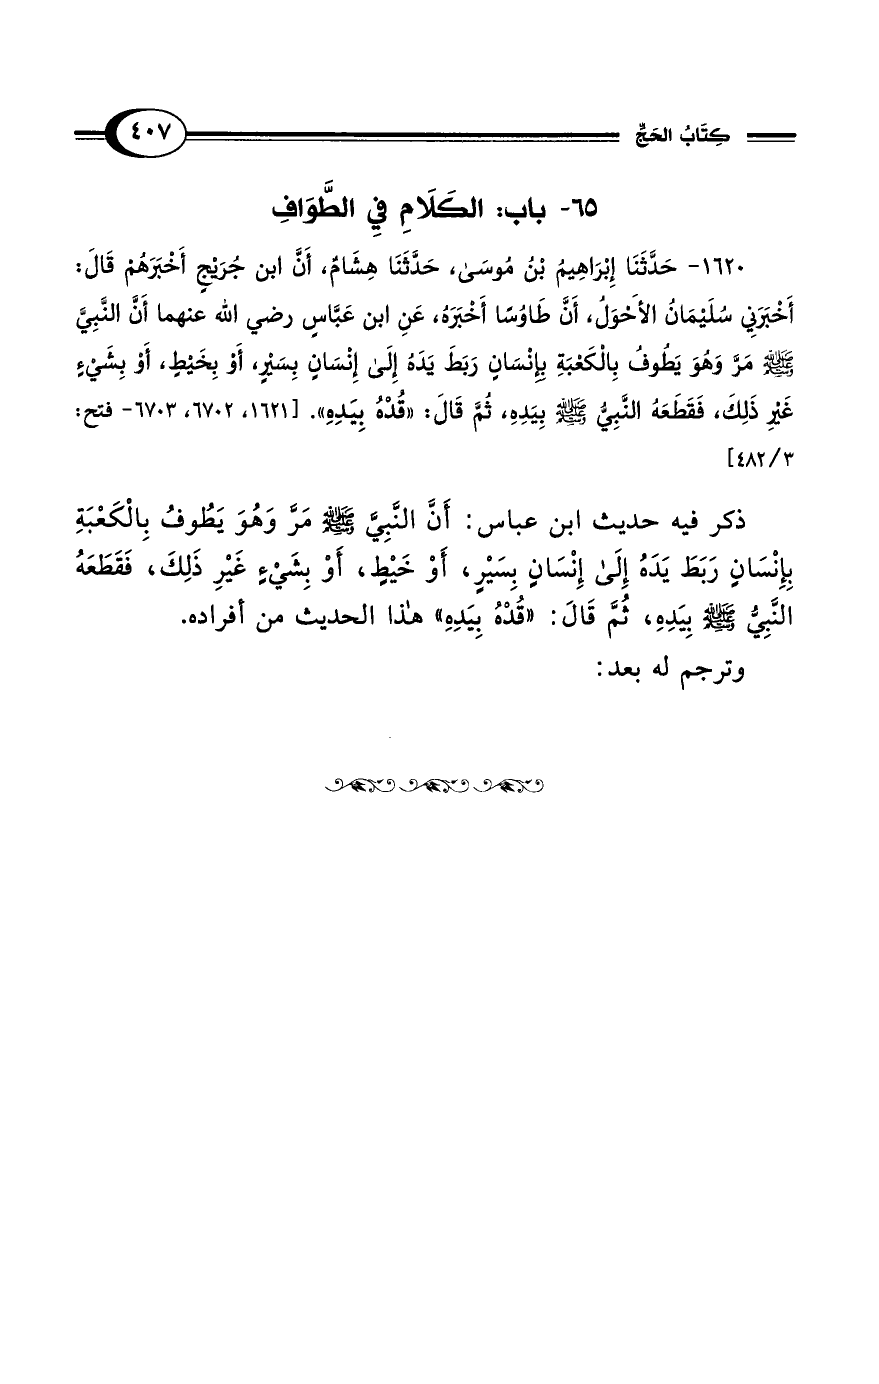 كِتَابُ الحَجِّ ٤٠٧
٦٥- باب: الكَلَامِ فِي الطَّوَافِ
١٦٢٠- حَدَّثَنَا إِبْرَاهِيمُ بْنُ مُوسَىٰ، حَدَّثَنَا هِشَامٌ، أَنَّ ابن جُرَيْجٍ أَخْبَرَهُمْ قَالَ:
أَخْبَرَنِي سُلَيْمَانُ الأَحْوَلُ، أَنَّ طَاوُسًا أَخْبَرَهُ، عَنِ ابن عَبَّاسٍ رضي الله عنهما أَنَّ النَّبِيَّ
ﷺ مَرَّ وَهُوَ يَطُوفُ بِالْكَعْبَةِ بِإِنْسَانٍ رَبَطَ يَدَهُ إِلَىٰ إِنْسَانٍ بِسَيْرٍ، أَوْ بِخَيْطٍ، أَوْ بِشَيْءٍ
غَيْرِ ذَلِكَ، فَقَطَعَهُ النَّبِيُّ ﷺ بِيَدِهِ، ثُمَّ قَالَ: «قُدْهُ بِيَدِهِ». [١٦٢١، ٦٧٠٢، ٦٧٠٣- فتح:
٣/ ٤٨٢]
ذكر فيه حديث ابن عباس: أَنَّ النَّبِيَّ ﷺ مَرَّ وَهُوَ يَطُوفُ بِالْكَعْبَةِ
بِإِنْسَانٍ رَبَطَ يَدَهُ إِلَىٰ إِنْسَانٍ بِسَيْرٍ، أَوْ خَيْطٍ، أَوْ بِشَيْءٍ غَيْرِ ذَلِكَ، فَقَطَعَهُ
النَّبِيُّ ﷺ بِيَدِهِ، ثُمَّ قَالَ: «قُدْهُ بِيَدِهِ» هٰذا الحديث من أفراده.
وترجم له بعد: